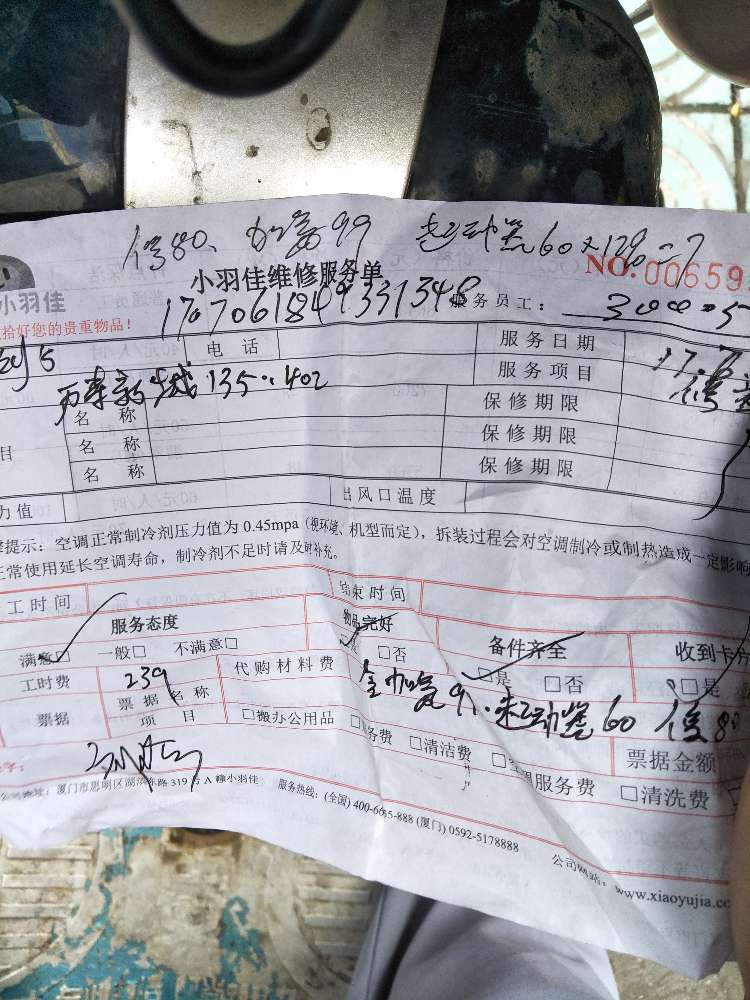 修80、加氟99 起动器60×12%=7
小羽佳维修服务单
NO.00659
小羽佳
拾好您的贵重物品！
1707061849331348
服务员工：
电 话
服务日期
17.
服务项目
名 称
保修期限
名 称
保修期限
名 称
保修期限
135.402
力值
出风口温度
提示：空调正常制冷剂压力值为 0.45mpa（视环境、机型而定），拆装过程会对空调制冷或制热造成一定影响
正常使用延长空调寿命，制冷剂不足时请及时补充。
工时间
结束时间
服务态度
物品完好
备件齐全
收到卡片
满意□ 一般□ 不满意□
□否
□是 □否
□是
工时费
239
代购材料费
加氟99.起动器60 修80
票据
票据名称
项 目
□搬办公用品
务费
□清洁费
服务费
票据金额
□清洗费
字：
地址：厦门市思明区湖滨东路 319 号 A 幢小羽佳 服务热线：(全国) 400-6655-888 (厦门) 0592-5178888
公司网站：www.xiaoyujia.cc